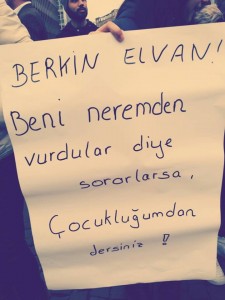 BERKİN ELVAN!
Beni neremden
vurdular diye
sorarlarsa,
Çocukluğumdan
dersiniz !